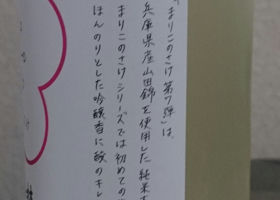 「まりこのさけ第7弾」は、
兵庫県産山田錦を使用した純米
まりこのさけシリーズでは初めての
ほんのりとした吟醸香に酸のキレ